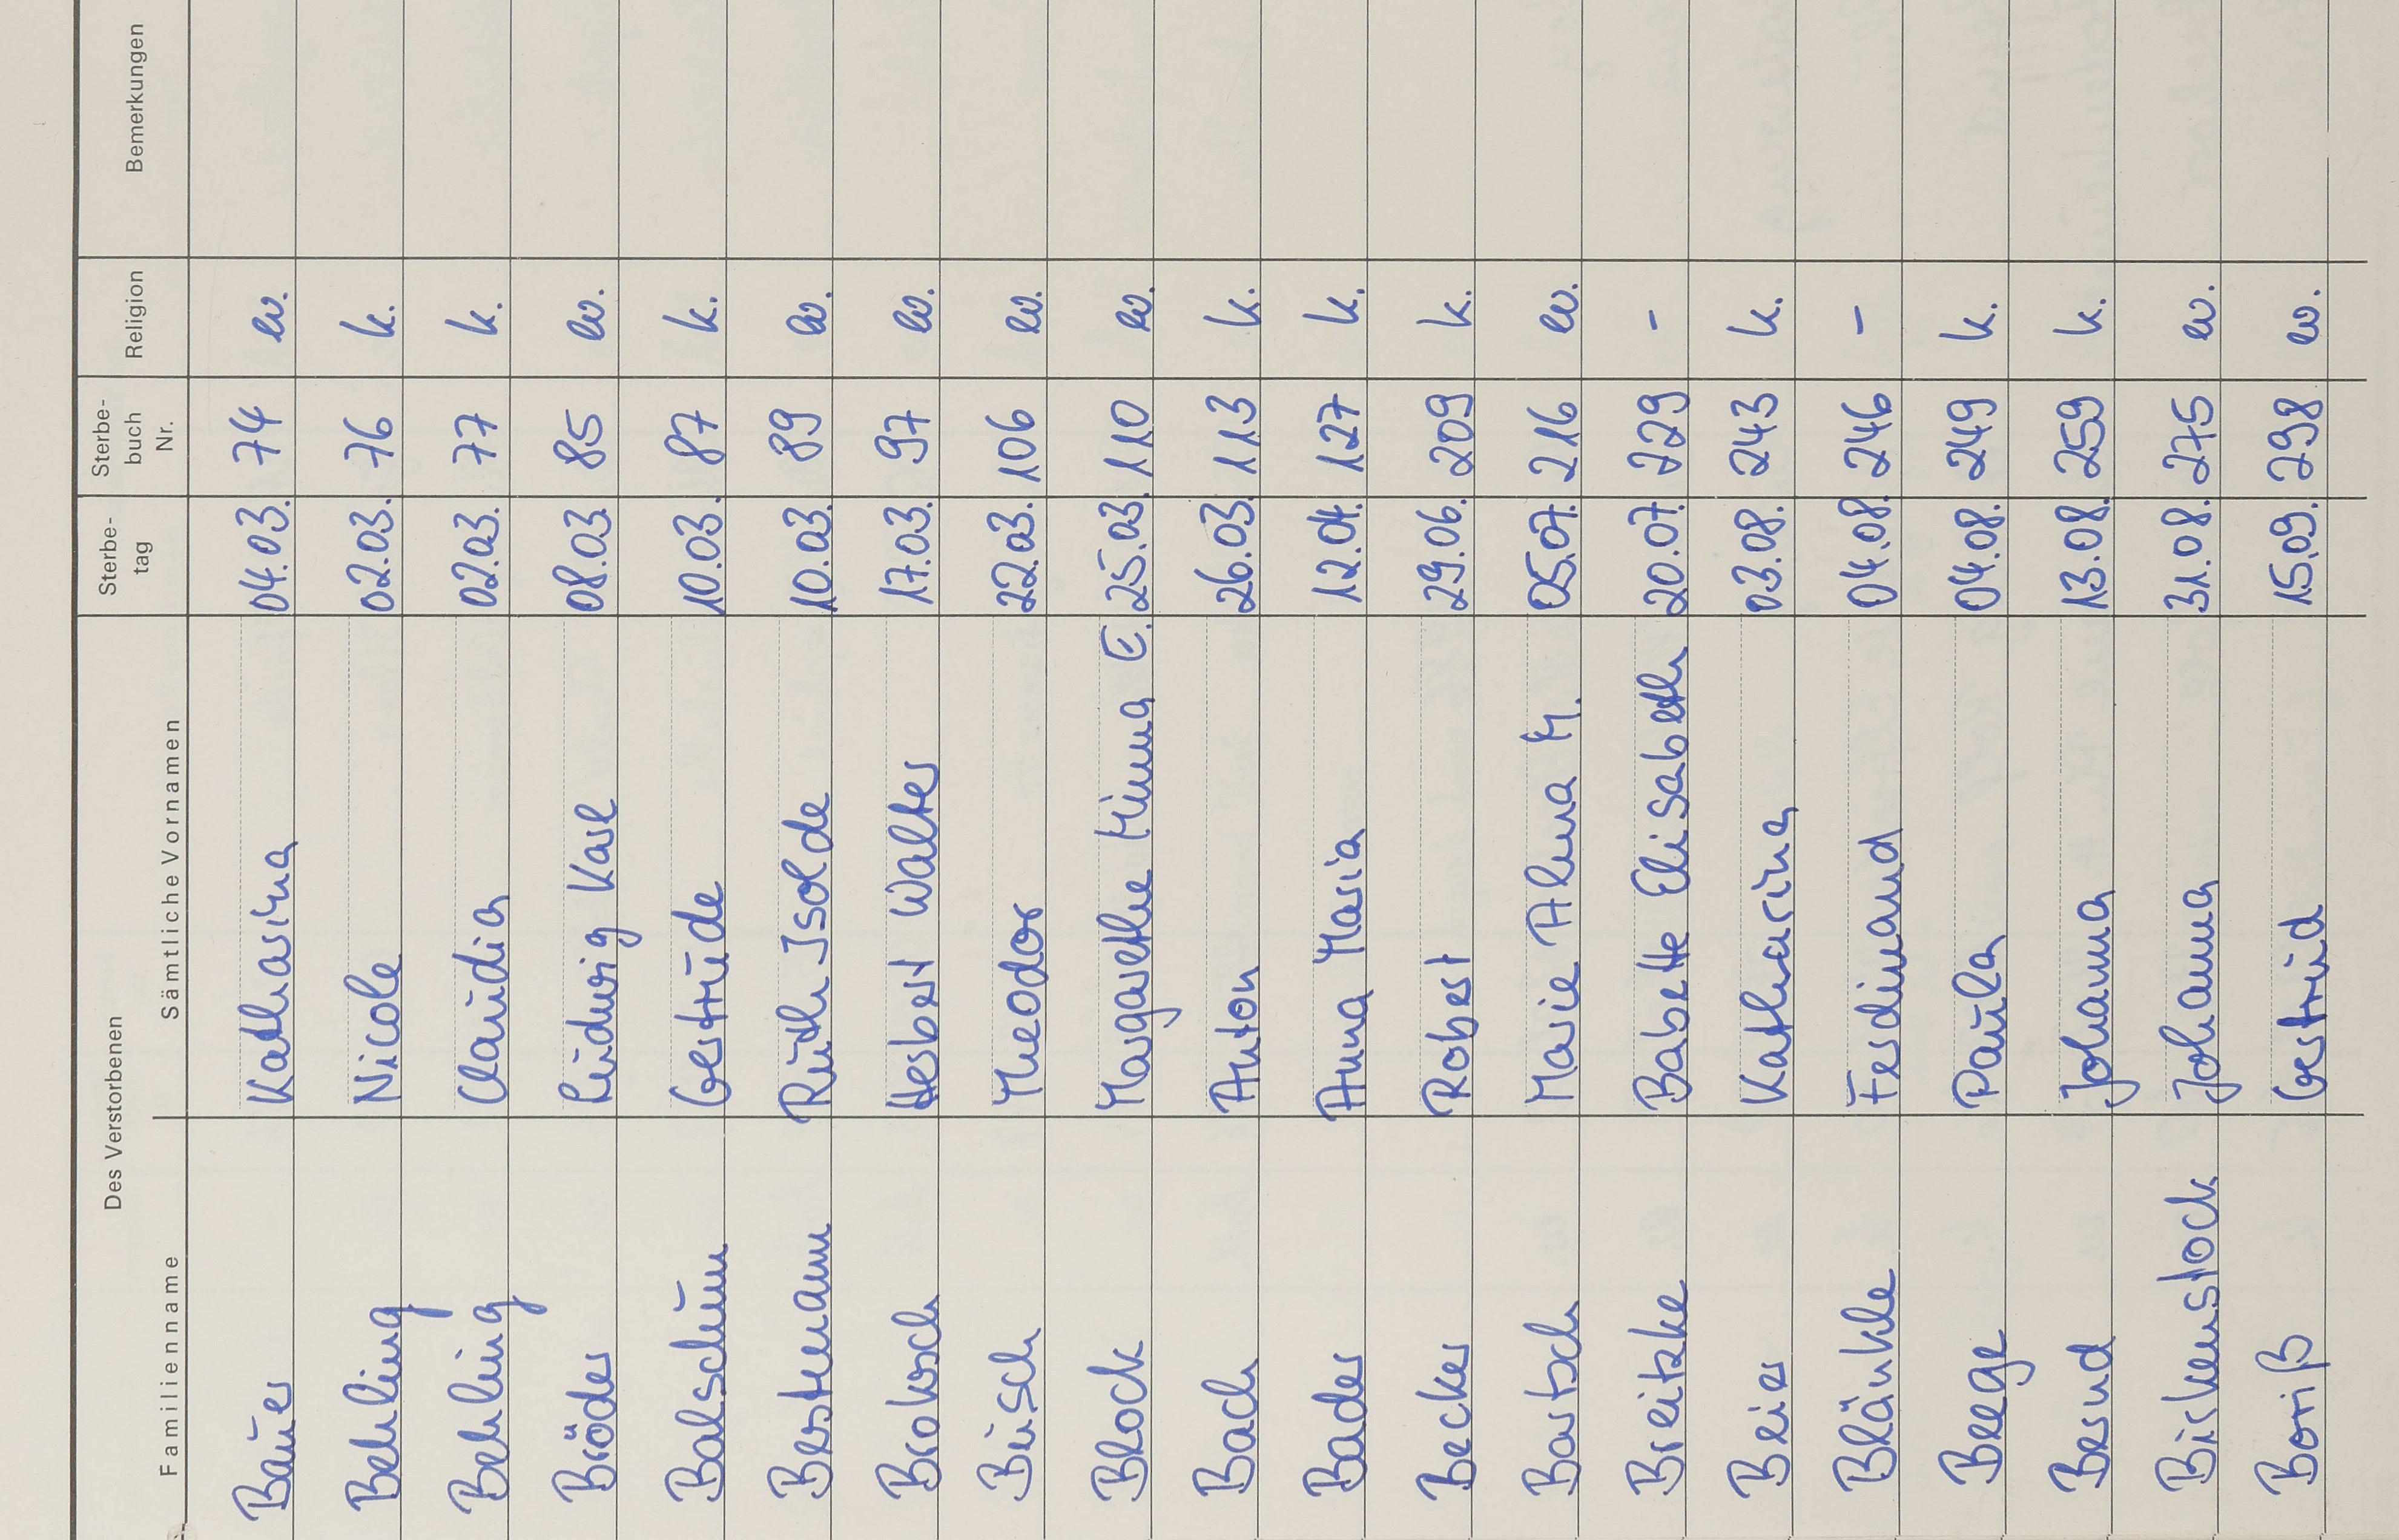 Des Verstorbenen Sterbe- Sterbe- Religion Bemerkungen
Familienname Sämtliche Vornamen tag buch Nr.
Bauer Katharina 04.03. 74 ev.
Behling Nicole 02.03. 76 k.
Behling Claudia 02.03. 77 k.
Bröder Ludwig Karl 08.03. 85 ev.
Balschun Gertrude 10.03. 87 k.
Bestmann Ruth Isolde 10.03. 89 ev.
Brokosch Herbert Walter 17.03. 97 ev.
Busch Theodor 22.03. 106 ev.
Block Margarethe Minna E. 25.03. 110 ev.
Bach Anton 26.03. 113 k.
Bader Anna Maria 12.04. 127 k.
Becker Robert 29.06. 209 k.
Bartsch Marie Alma M. 05.07. 216 ev.
Breitzke Babette Elisabeth 20.07. 229 -
Beier Katharina 03.08. 243 k.
Blänkle Ferdinand 04.08. 246 -
Beege Paula 04.08. 249 k.
Bernd Johanna 13.08. 259 k.
Birkenstock Johanna 31.08. 275 ev.
Boriß Gertrud 15.09. 298 ev.